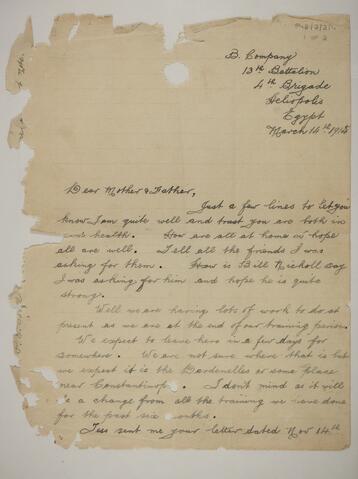 1 of 2
B. Company
13th Battalion
4th Brigade
Heliopolis
Egypt
March 14th 1915
Dear Mother & Father,
Just a few lines to let you
know I am quite well and trust you are both in
good health. How are all at home I hope
all are well. Tell all the friends I was
asking for them. How is Bill Nicholl say
I was asking for him and hope he is quite
strong.
Well we are having lots of work to do at
present as we are at the end of our training period.
We expect to leave here in a few days for
somewhere. We are not sure where that is but
we expect it is the Dardenelles or some place
near Constantinople. I don't mind as it will
be a change from all the training we have done
for the past six months.
Tess sent me your letter dated Nov 14th